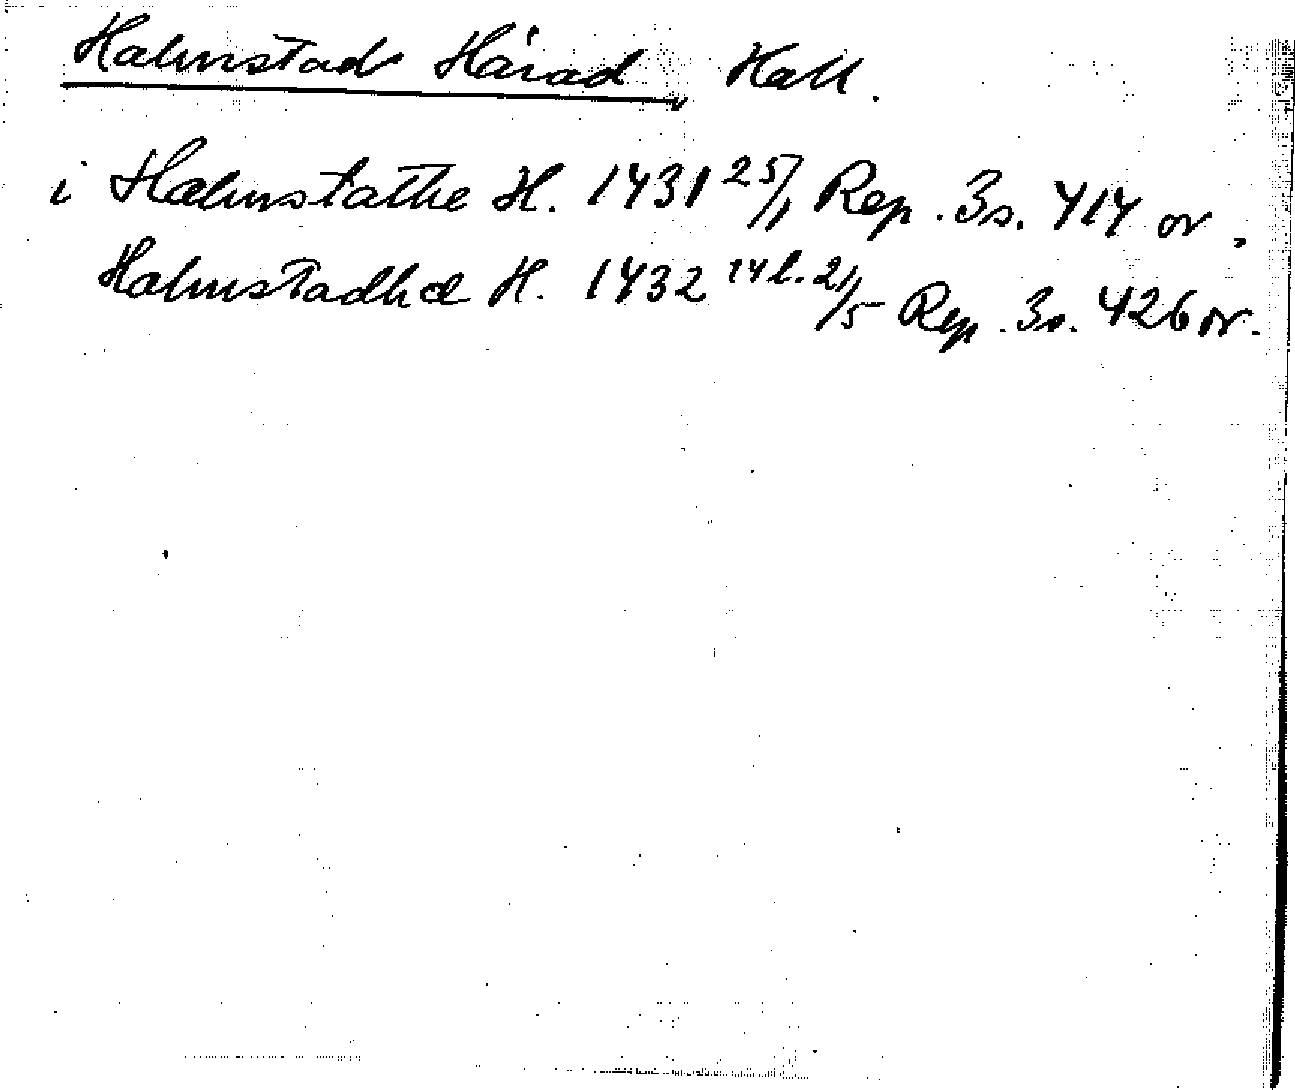 Halmstad Härad, Hall.
i Halmstathe H. 1431 25/1 Rep. 3 s. 414 or.
Halmstadhæ H. 1432 14 l. 21/5 Rep. 3 s. 426 or.